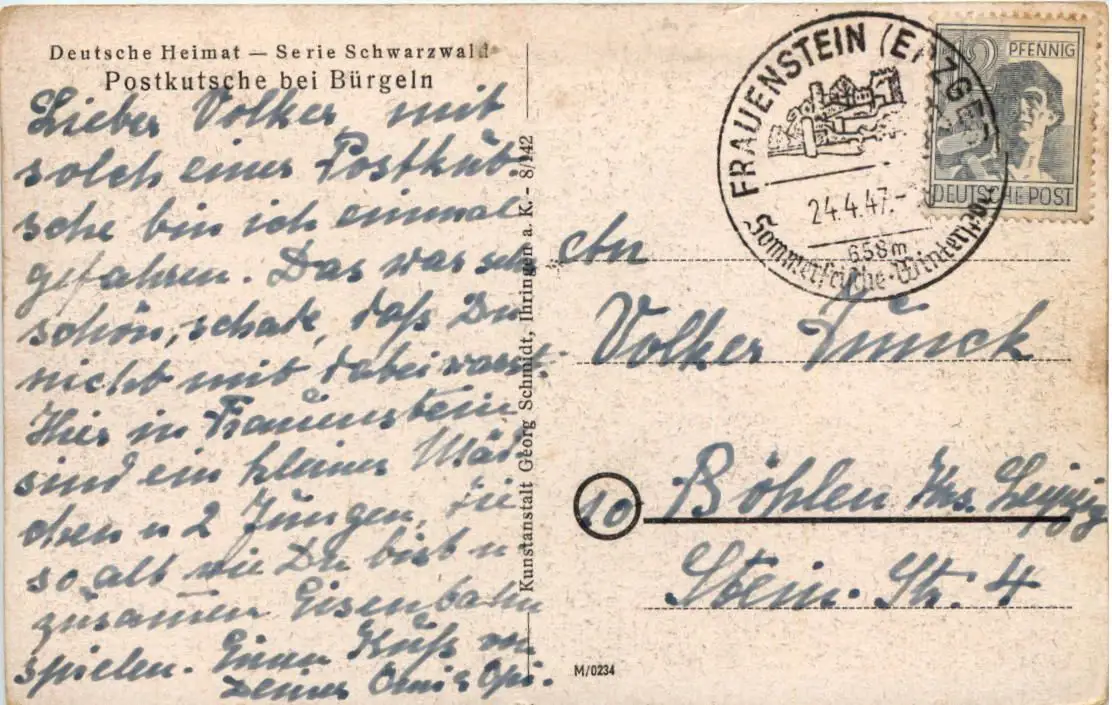 Deutsche Heimat — Serie Schwarzwald
Postkutsche bei Bürgeln
Lieber Volker, mit
solch einer Postkut-
sche bin ich einmal
gefahren. Das war sehr
schön, schade, daß Du
nicht mit dabei warst.
Hier in Frauenstein
sind ein kleines Mäd
chen u 2 Jungen, die
so alt wie Du bist u
zusammen Eisenbahn
spielen. Einen Kuß von
Deiner Omi u Opi.
Kunstanstalt Georg Schmidt, Ihringen a. K. - 8/142
FRAUENSTEIN (ERZGEB.)
24.4.47.-
658m
Sommerfrische-Wintersport
12 PFENNIG
DEUTSCHE POST
An
Volker
10 Böhlen Krs. Leipzig
Stein-Str. 4
M/0234